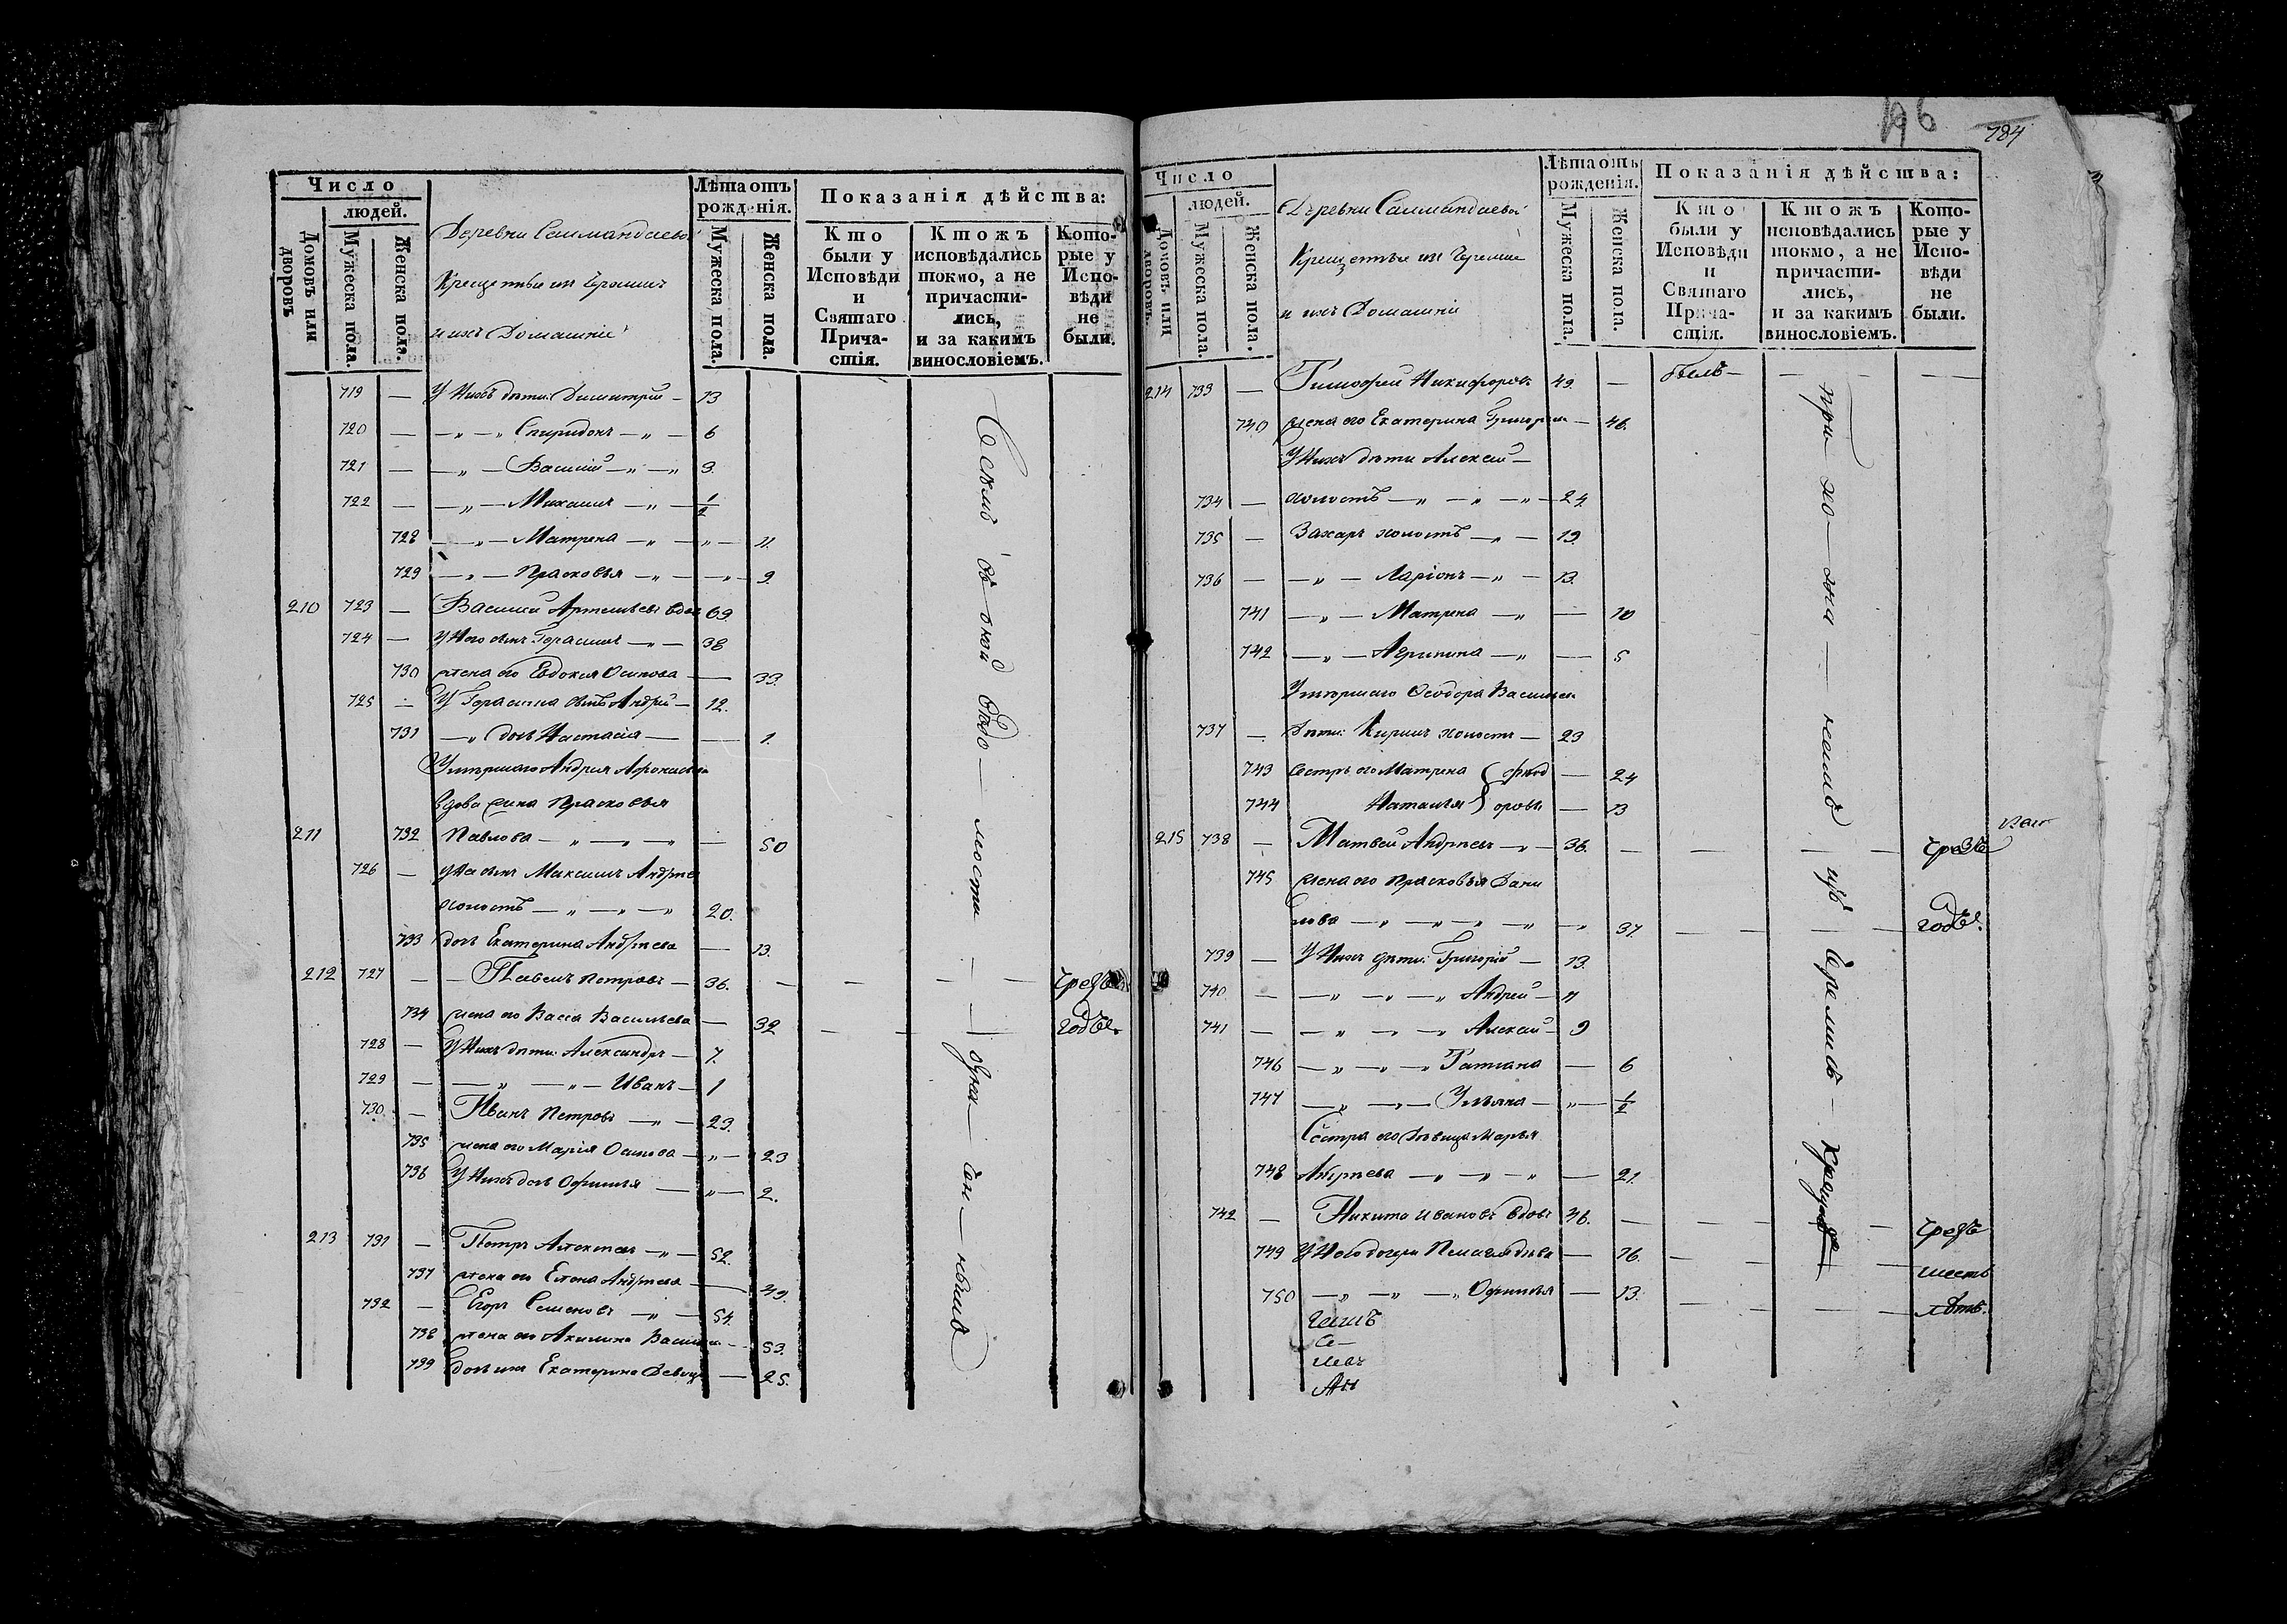 Число
людей.
Домовъ или дворовъ
Мужеска пола.
Женска пола.
Деревни Салмандаевой
Крещеныи изъ Черемисъ
и ихъ Домашніе
Лѣта отъ рожденія.
Мужеска пола.
Женска пола.
Показанія дѣйства:
Кто были у Исповѣди и Святаго Причастія.
Ктожъ исповѣдались токмо, а не причастились, и за какимъ винословіемъ.
Которые у Исповѣди не были.
719 — У Нихъ дѣти: Димитрій — 13
720 — — „ — „ Спиридонъ — „ — 6
721 — — „ — Василій — „ — „ 3.
722 — — „ — Михаилъ — „ — 1/2
728 — „ — Матрена — „ — „ — 11.
729 — „ — Прасковья — „ — „ — 9
210 723 — Василій Артемьевъ вдов 69
724 — У Него сынъ Герасимъ — „ — 38
730 жена его Евдокия Осипова — 33.
725 — У Герасима дѣти Андрей — 12.
731 — „ дочь Настасія — — 1.
Умершаго Андрея
вдова Прасковья
211 732 Павлова — „ — „ — „ — 50
726 — У Нея сынъ Максимъ Андрее
холостъ — „ — „ — „ 20.
733 дочь Екатерина Андреева — 13.
212 727 — — Павелъ Петровъ — 36. — — — — чрезъ
734 жена его Васса Васильева — 32 — — годъ.
728 — У Нихъ дѣти: Александръ — 7.
729 — — „ — „ — Иванъ — 1
730. — Иванъ Петровъ — „ — 23.
735 жена его Марія Осипова — „ — 23
736 У Нихъ дочь Офимья — „ — 2.
213 731 — Петръ Алексѣевъ — „ — 52.
737 жена его Елена Андреева — 49.
732 — Егоръ Семеновъ — „ — 54.
738 жена его Акилина Василь — 53.
739 дочь ихъ Екатерина Девица — 25.
196
784
Число
людей.
Домовъ или дворовъ.
Мужеска пола.
Женска пола.
Деревни Салмандаевой
Крещеныи изъ Черемис
и ихъ Домашніи
Лѣта отъ рожденія.
Мужеска пола.
Женска пола.
Показанія дѣйства:
Кто были у Исповѣди и Святаго Причастія.
Ктожъ исповѣдались токмо, а не причастились, и за какимъ винословіемъ.
Которые у Исповѣди не были.
214 733 — Тимофей Никифоровъ 49. — былъ — — —
740 жена его Екатерина Григорьева — 46.
У Нихъ дѣти Алексей —
734 — холостъ — „ — „ — „ — 24.
735 — Захаръ холостъ — „ — 19.
736 — — „ — Ларіонъ — „ — 13.
741 — „ — Матрена — „ — 10
742 — „ — Агрипина — „ — 5
Умершаго Феодора Васильев
737 — Дѣти: Кирилъ холостъ — 23
743 сестры его Матрена — 24
744 Наталья — 13
215 738 — Матвей Андреевъ — „ — 36. — — — чрезъ
745 жена его Прасковья Дани
лова — „ — „ — „ — „ — „ 37. — — — годъ.
739 — У Нихъ дѣти: Григорій — 13.
740 — — „ — „ — „ Андрей — 11
741 — — „ — „ — „ Алексей — 9
746 — „ — „ — „ Татиана — 6
747 — „ — „ — Ульяна — „ — 1/2
Сестра его дѣвица Марья
748 Андреева — „ — „ — „ — 21.
742 — Никита Ивановъ вдовъ 46. — — — чрезъ
749 У Него дочери Пелагея дѣвка — 16. — — — шесть
750 — „ — „ — „ Офимья — 13. — — — лѣтъ.